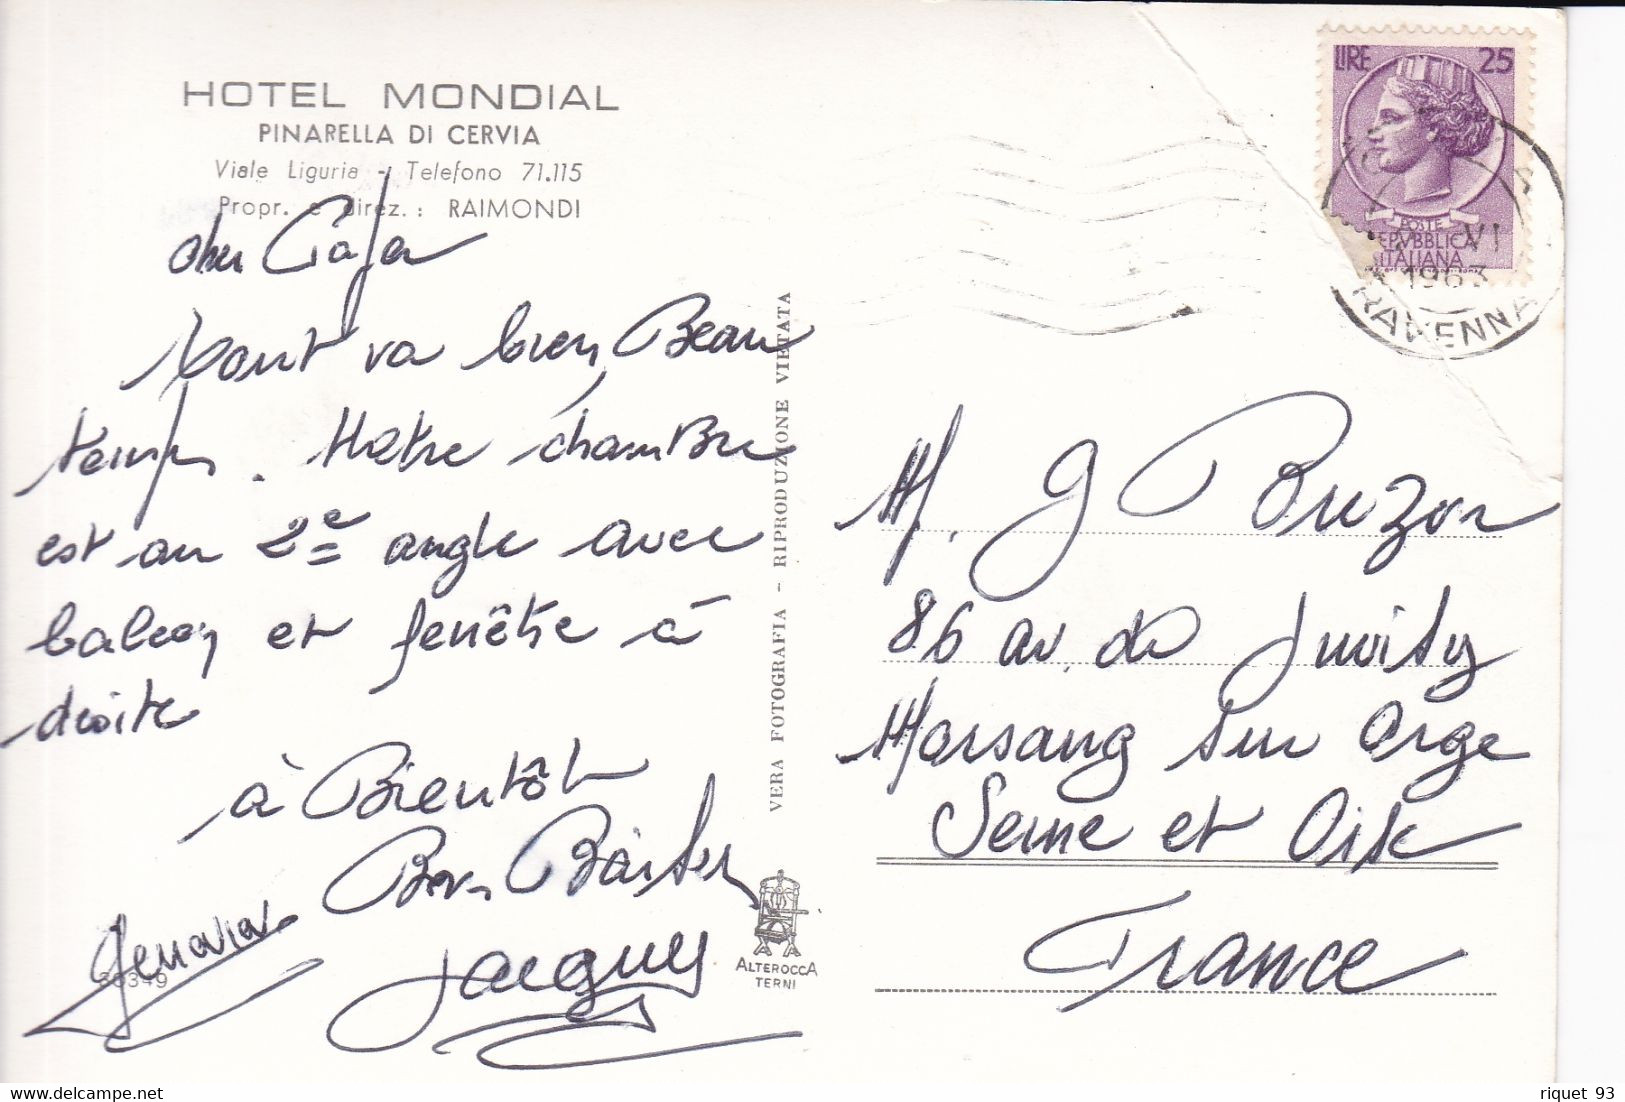 HOTEL MONDIAL
PINARELLA DI CERVIA
Viale Liguria - Telefono 71.115
Propr. e direz.: RAIMONDI
cher
tout va bien, Beau
temps. Notre chambre
est au 2e angle avec
balcon et fenêtre à
droite
à Bientôt
Bon
Jacques
36349
VERA FOTOGRAFIA - RIPRODUZIONE VIETATA
ALTEROCCA
TERNI
LIRE 25
POSTE
REPVBBLICA
ITALIANA
VI
1963
RAVENNA
M. J Buzon
86 av. de Juvisy
Morsang sur Orge
Seine et Oise
France
riquet 93